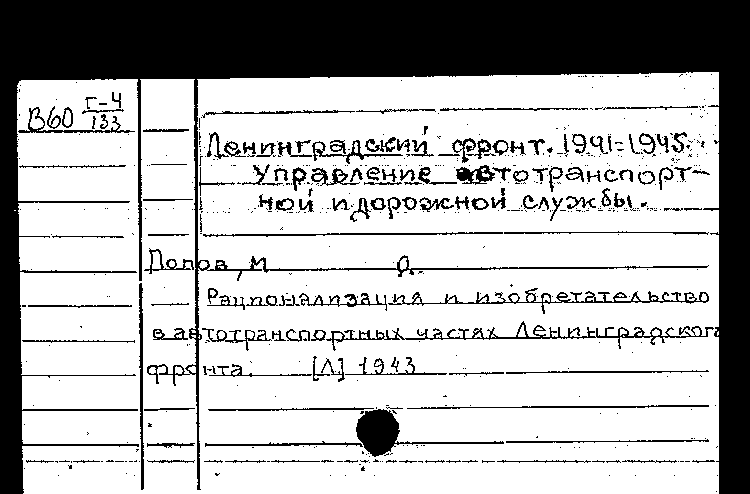 В60 Г-4
133
Ленинградский фронт. 1941-1945.
Управление автотранспорт-
ной и дорожной службы.
Попов, М О.
Рационализация и изобретательство
в автотранспортных частях Ленинградского
фронта. [Л] 1943